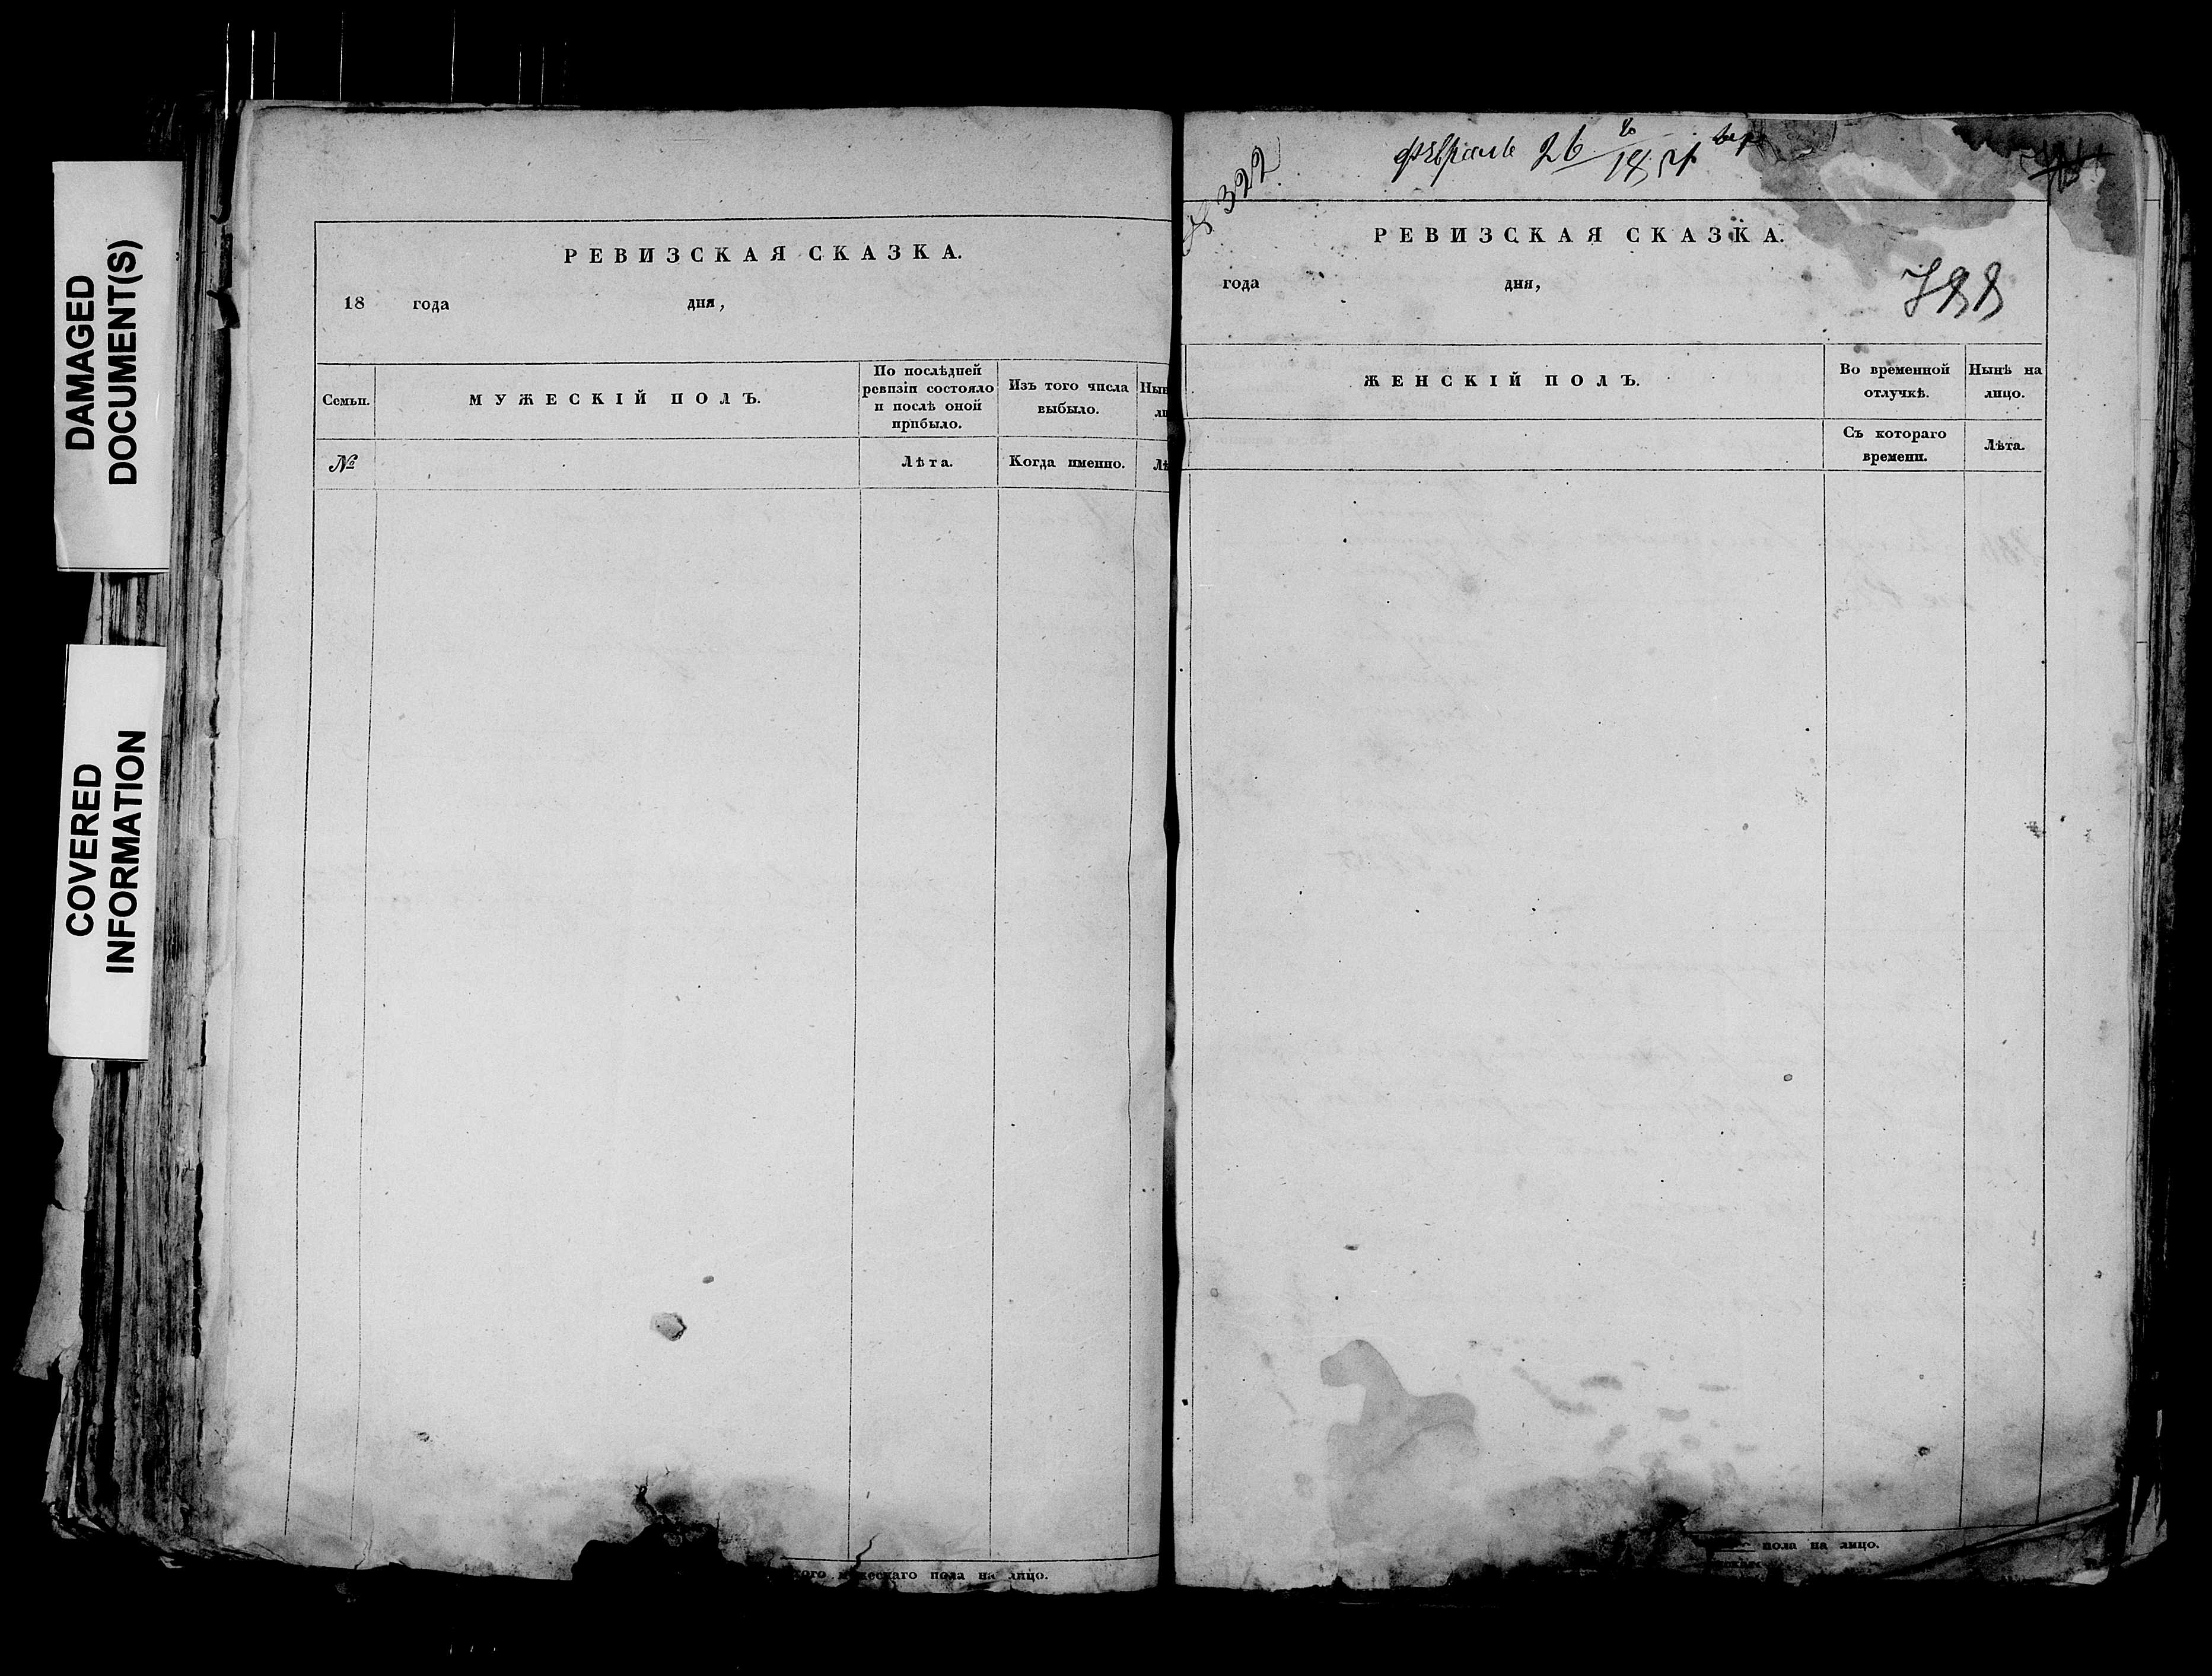 DAMAGED
DOCUMENT(S)
COVERED
INFORMATION
РЕВИЗСКАЯ СКАЗКА.
18 года дня,
Семьи.
МУЖЕСКІЙ ПОЛЪ.
По послѣдней
ревизіи состояло
и послѣ оной
прибыло.
Изъ того числа
выбыло.
№
Лѣта.
Когда именно.
пола на лицо.
322
февраля 26
РЕВИЗСКАЯ СКАЗКА.
года дня,
788
ЖЕНСКІЙ ПОЛЪ.
Во временной
отлучкѣ.
Нынѣ на
лицо.
Съ котораго
времени.
Лѣта.
пола на лицо.